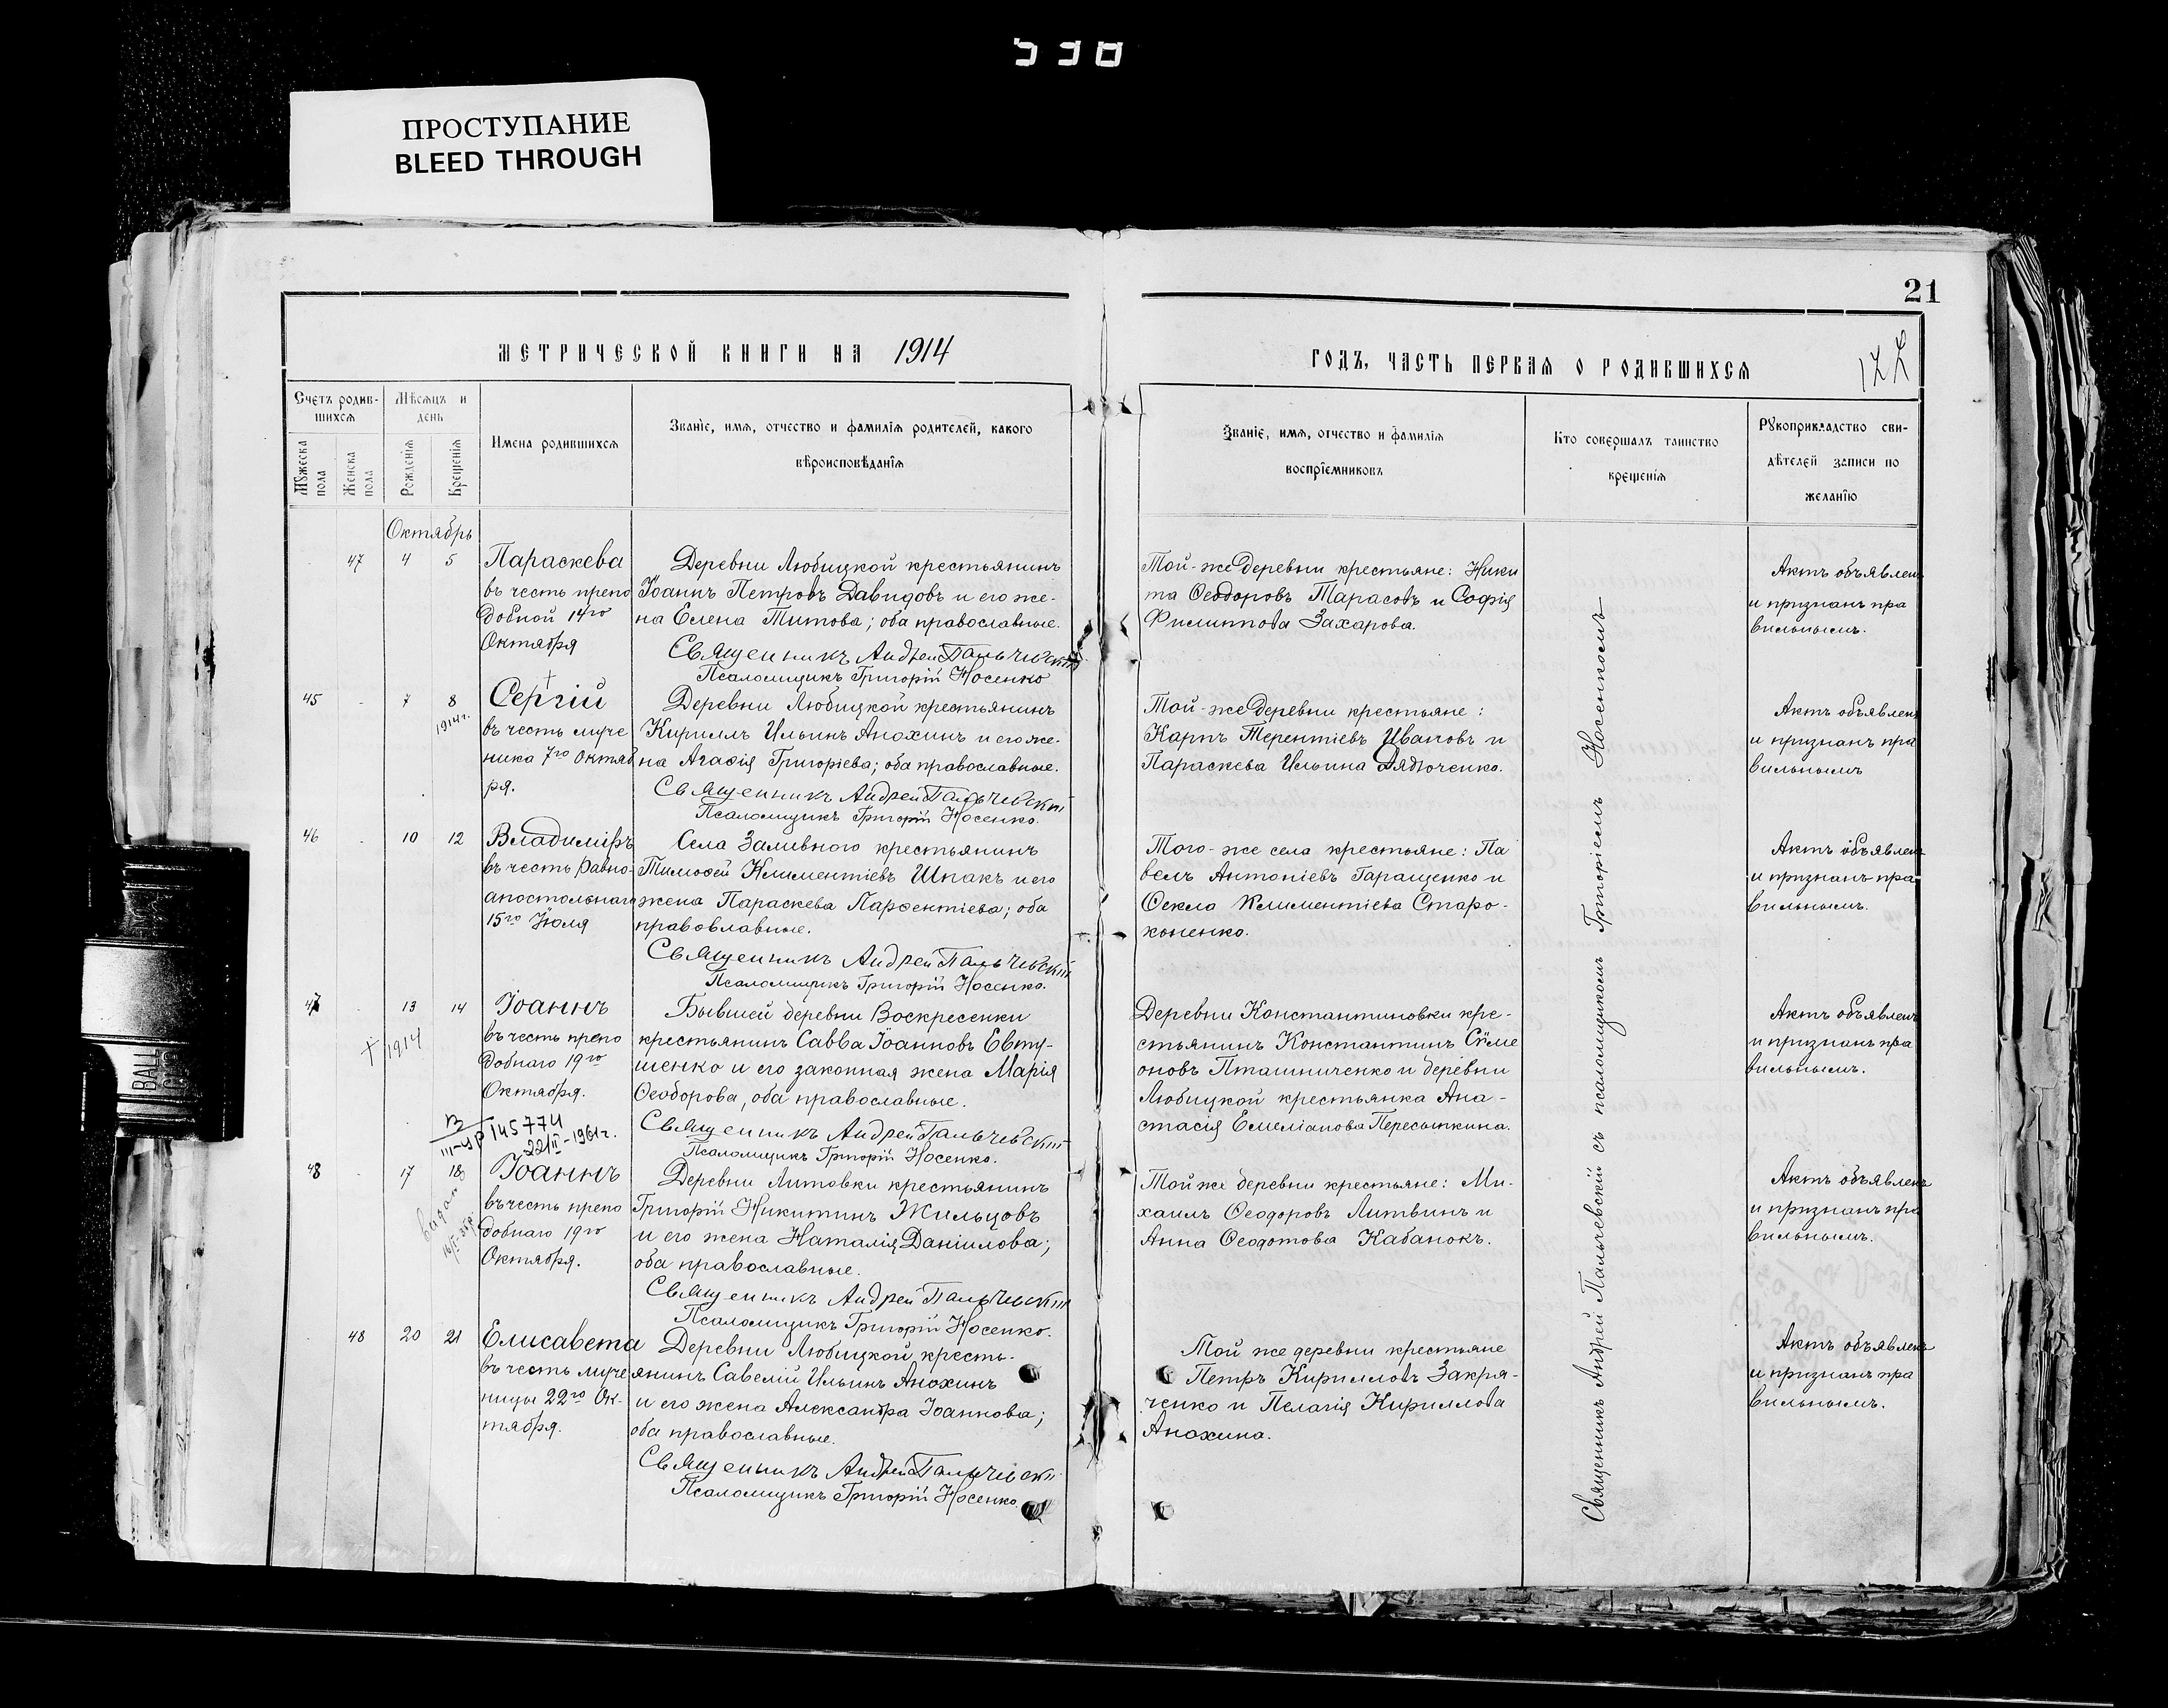 ПРОСТУПАНИЕ
BLEED THROUGH
21
МЕТРИЧЕСКОЙ КНИГИ НА 1914
ГОДЪ, ЧАСТЬ ПЕРВАЯ О РОДИВШИХСЯ
Счетъ родив-
шихся
Мужеска
пола
Женска
пола
Мѣсяцъ и
день
Рожденія
Крещенія
Имена родившихся
Званіе, имя, отчество и фамилія родителей, какого
вѣроисповѣданія
Званіе, имя, отчество и фамилія
воспріемниковъ
Кто совершалъ таинство
крещенія
Рукоприкладство сви-
дѣтелей записи по
желанію
Октябрь
47 4 5
Параскева
въ честь препо
добной 14го
Октября
Деревни Любицкой крестьянинъ
Іоаннъ Петровъ Давидовъ и его же-
на Елена Титова; оба православные.
Священникъ Андрей Пальчевскій
Псаломщикъ Григорій Носенко
Той-же деревни крестьяне: Ники
та Ѳеодоровъ Тарасовъ и Софія
Филиппова Захарова.
Актъ объявленъ
и признанъ пра
вильнымъ.
45 7 8
1914 г.
Сергій
въ честь муче
ника 7го Октяб
ря.
Деревни Любицкой крестьянинъ
Кириллъ Ильинъ Анохинъ и его же-
на Агаѳія Григоріева; оба православные.
Священникъ Андрей Пальчевскій
Псаломщикъ Григорій Носенко.
Той-же деревни крестьяне:
Карпъ Терентіевъ Ивановъ и
Параскева Ильина Дядюченко.
Актъ объявленъ
и признанъ пра
вильнымъ
46 10 12
Владиміръ
въ честь равно-
апостольнаго
15го Іюля
Села Заливного крестьянинъ
Тимоѳей Климентіевъ Шпакъ и его
жена Параскева Парѳентіева; оба
православные.
Священникъ Андрей Пальчевскій
Псаломщикъ Григорій Носенко.
Того-же села крестьяне: Па
велъ Антоніевъ Гаращенко и
Ѳекла Климентіева Старо-
коненко.
Актъ объявленъ
и признанъ пра
вильнымъ.
47 13 14
1914
Іоаннъ
въ честь препо
добнаго 19го
Октября.
Бывшей деревни Воскресенки
крестьянинъ Савва Іоанновъ Евту-
шенко и его законная жена Марія
Ѳеодорова, оба православные.
Священникъ Андрей Пальчевскій
Псаломщикъ Григорій Носенко.
Деревни Константиновки кре-
стьянинъ Константинъ Симе
оновъ Пташниченко и деревни
Любицкой крестьянка Ана-
стасія Емеліанова Пересыпкина.
Актъ объявленъ
и признанъ пра
вильнымъ.
145774
22/II-1961г.
48 17 18
Іоаннъ
въ честь препо
добнаго 19го
Октября.
Деревни Литовки крестьянинъ
Григорій Никитинъ Жильцовъ
и его жена Наталія Даніилова;
оба православные.
Священникъ Андрей Пальчевскій
Псаломщикъ Григорій Носенко.
Той же деревни крестьяне: Ми-
хаилъ Ѳеодоровъ Литвинъ и
Анна Ѳеодотова Кабанокъ.
Актъ объявленъ
и признанъ пра
вильнымъ.
48 20 21
Елисавета
въ честь муче
ницы 22го Ок-
тября.
Деревни Любицкой кресть-
янинъ Савелій Ильинъ Анохинъ
и его жена Александра Іоаннова;
оба православные.
Священникъ Андрей Пальчевскій
Псаломщикъ Григорій Носенко.
Той же деревни крестьяне
Петръ Кирилловъ Закря-
ченко и Пелагія Кириллова
Анохина.
Актъ объявленъ
и признанъ пра
вильнымъ.
Священникъ Андрей Пальчевскій съ псаломщикомъ Григоріемъ Носенкомъ